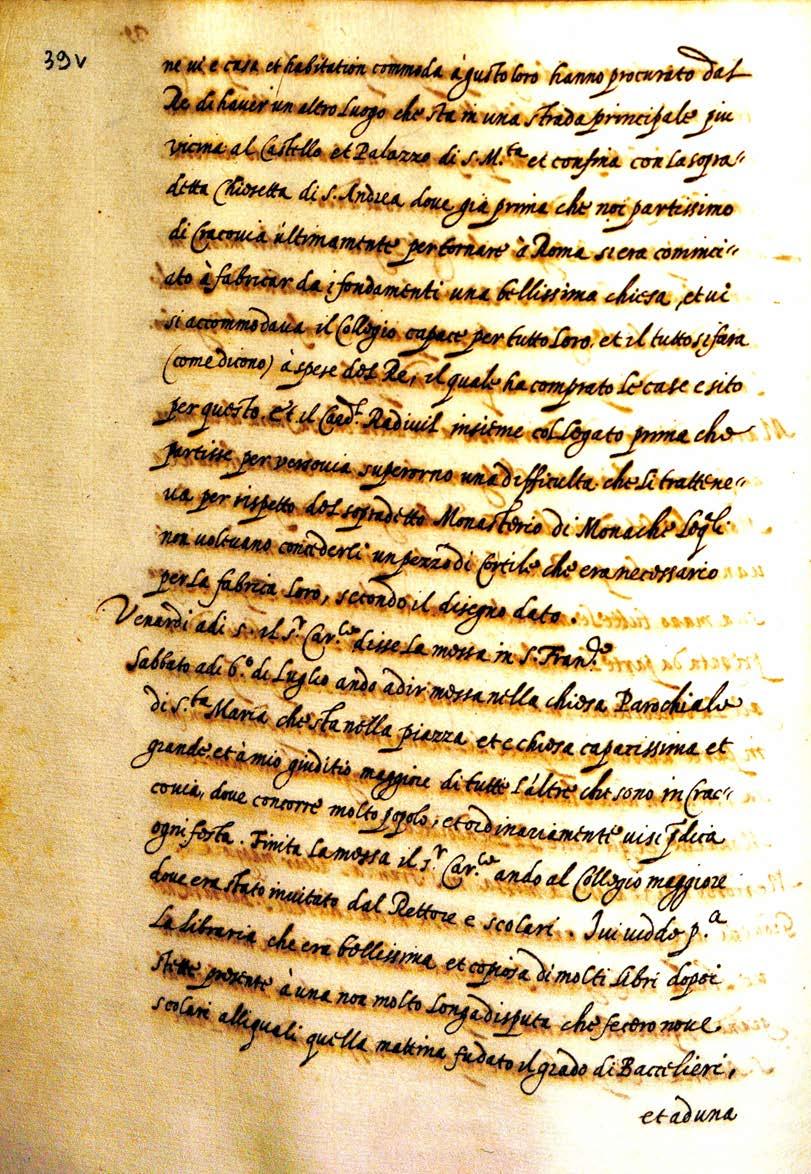 39v
ne vi e casa et habitation commoda à gusto loro hanno procurato dal
Re di haver un altro luogo che sta in una strada principale piu
vicina al Castello et Palazzo di S. M.ta et confina con la sopra=
detta Chiesetta di S. Andrea dove già prima che noi partissimo
di Cracovia ultimamente per tornare à Roma si era cominci=
ato à fabricar da i fondamenti una bellissima chiesa, et vi
si accommodava il Collegio capace per tutto loro, et il tutto si fara
(come dicono) à spese del Re, il quale ha comprato le case e sito
per questo, et il Card.l Radivil insieme col Legato prima che
partisse per versovia superorno una difficulta che li trattene=
va per rispetto del sopradetto Monasterio di Monache le q.li
non volevano concederli un pezzo di Cortile che era necessario
per la fabrica loro, secondo il disegno dato.
Venardi adi 5. il S.r Car.le disse la messa in S. Fran.co
Sabbato adi 6.o di Luglio ando a dir messa nella chiesa Parochiale
di S.ta Maria che sta nella piazza et e chiesa capacissima et
grande, et à mio giuditio maggiore di tutte l'altre che sono in Crac=
covia, dove concorre molto popolo, et ordinariamente vi si p̄dica
ogni festa. Finita la messa il S.r Car.le ando al Collegio maggiore
dove era stato invitato dal Rettore e scolari. Ivi vidde p.a
la libraria che era bellissima et copiosa di molti libri dopoi
stette presente à una non molto longa disputa che fecero nove
scolari alli quali quella mattina fu dato il grado di Baccelieri,
et ad una